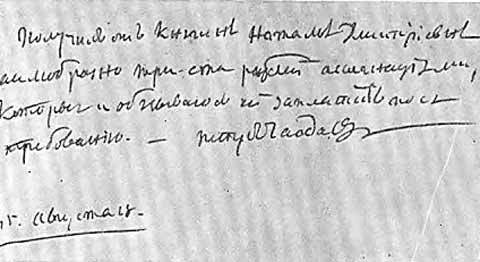 Получилъ отъ Княгини Натальи Дмитріевны
заимобразно три-ста рублей ассигнаціями,
которые и обязываюсь ей заплатить по ея
требованію. — Петръ Чаадаевъ
15. августа.